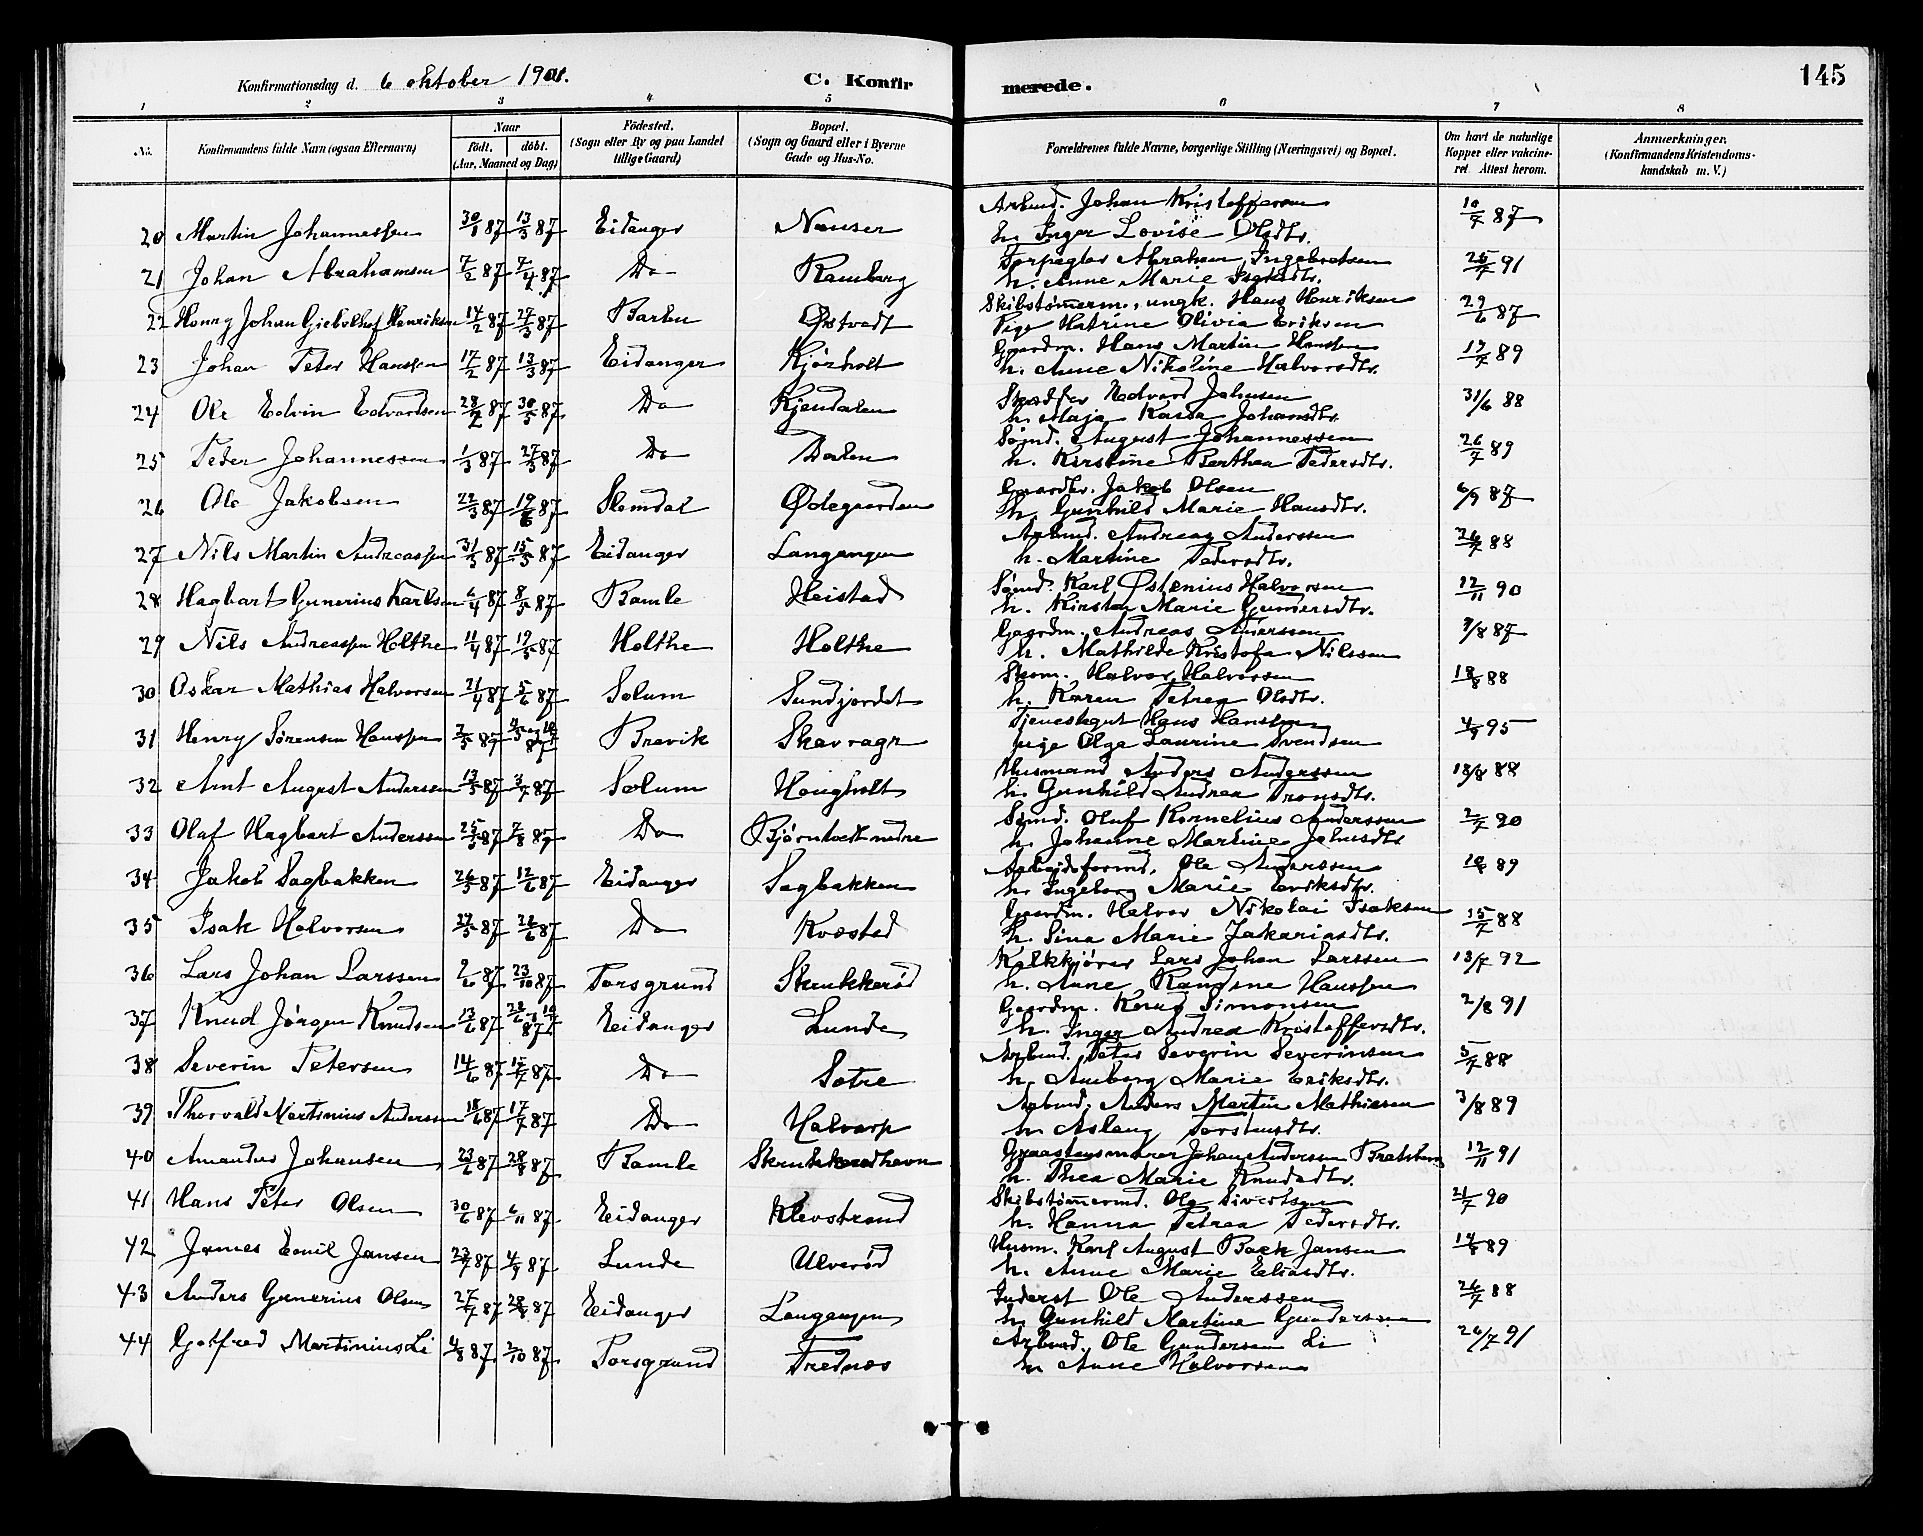 Konfirmationsdag d. 6 oktober 1901. C. Konfirmerede. 145
1 2 3 4 5 6 7 8
No. Konfirmandens fulde Navn (ogsaa Efternavn) Naar Födt. döbt. (Aar, Maaned og Dag) Födested. (Sogn eller By og paa Landet tillige Gaard) Bopæl. (Sogn og Gaard eller i Byerne Gade og Hus-No. Forældrenes fulde Navne, borgerlige Stilling (Næringsvei) og Bopæl. Om havt de naturlige Kopper eller vakcineret Attest herom. Anmærkninger. (Konfirmandens Kristendomskundskab m. V.)
Arbmd. Johan Kristoffersen
20 Martin Johannessen 30/1 87 13/3 87 Eidanger Nenser 10/7 87
h. Inger Lovise Olsdtr.
Abraham Ingebretsen
21 Johan Abrahamsen 7/2 87 7/4 87 Do Ramberg 25/7 91
h. Anne Marie
Skibstømerm., ungk. Hans Henriksen
22 Henry Johan Henriksen 14/2 87 27/3 87 Østvedt 29/6 87
Pige Katrine Olivia Eriksen
Gaardm. Hans Martin Hansen
23 Johan Peter Hanssen 17/2 87 13/3 87 Eidanger Kjørholt 17/7 89
h. Anne Nikoline Halvorsdtr.
Edvard Johnsen
24 Ole Edvin Edvardsen 28/2 87 30/5 87 Do Kjendalen 31/6 88
h. Maja Johansdtr.
Sømd. August Johannessen
25 Peder Johannessen 1/3 87 27/3 87 Do Dalen 26/7 89
h. Kirstine Berthea Pedersdtr.
Gaardbr. Jakob Olsen
26 Ole Jakobsen 22/3 87 19/6 87 Slemdal Ødegaarden 6/9 87
h. Gunhild Marie Hansdtr.
Arbmd. Andreas Anderssen
27 Nils Martin Andreassen 31/3 87 15/5 87 Eidanger Langangen 26/7 88
h. Martine Pedersdtr.
Sømd. Karl Østenius Halvorsen
28 Hagbart Gunerius Karlsen 6/4 87 8/5 87 Bamle Heistad 12/11 90
h. Kirsten Marie Gunersdtr.
Gaardm. Andreas Anderssen
29 Nils Andreassen Holthe 11/4 87 19/5 87 Holthe Holthe 9/8 87
h. Mathilde Kristofa Nilssen
Skom. Halvor Halvorsen
30 Oskar Mathias Halvorsen 21/4 87 5/6 87 Solum Sundjordet 18/8 88
h. Karen Petrea Olsdtr.
Tjenestegut Hans Hansen
31 Henry Sørensen Hanssen 2/5 87 Brevik 4/9 95
pige Olga Laurine Svendsen
Husmand Anders Anderssen
32 Arnt August Anderssen 13/5 87 3/7 87 Solum Haugholt 18/8 88
h. Gunhild Andrea Tronsdtr.
Sømd. Oluf Kornelius Anderssen
33 Olaf Hagbart Anderssen 25/5 87 7/8 87 Do Bjørntvedt nedre 2/7 90
h. Johanne Martine Johnsdtr.
Arbeidsformd. Ole Anderssen
34 Jakob Sagbakken 26/5 87 12/6 87 Eidanger Sagbakken 10/6 89
h. Ingeborg Marie Eriksdtr.
Gaardm. Halvor Nikolai Isaksen
35 Isak Halvorsen 27/5 87 26/6 87 Do Kvæsted 15/7 88
h. Sina Marie Jakariasdtr.
Kalkkjører Lars Johan Larssen
36 Lars Johan Larssen 2/6 87 23/10 87 Porsgrund Skrukkerød 13/7 92
h. Anne Hanssen
Gaardm. Knud Simonsen
37 Knud Jørgen Knudsen 13/6 87 Eidanger Lunde 2/8 91
h. Inger Andrea Kristoffersdtr.
Arbmd. Peter Severin Severinsen
38 Severin Petersen 14/6 87 17/7 87 Do Sætre 5/7 88
h. Amborg Marie Eriksdtr.
Arbmd. Anders Martin Mathisen
39 Thorvald Martinius Anderssen 18/6 87 17/7 87 Do Halvarp 3/8 89
h. Aslaug Torstensdtr.
Graastensmurer Johan Andersen Bratsberg
40 Amandus Johansen 23/6 87 28/8 87 Bamle Skrukkerødhavn 12/11 91
h. Thea Marie Knudsdtr.
Skibstømermd. Ole Sivertsen
41 Hans Peter Olsen 30/6 87 6/11 87 Eidanger Klevstrand 21/7 90
h. Hanna Petrea Pedersdtr.
Husm. Karl August Back Jansen
42 James Emil Jansen 23/7 87 4/9 87 Lunde Ulverød 14/8 89
h. Anne Marie Eliasdtr.
Inderst Ole Anderssen
43 Anders Gunerius Olsen 27/7 87 28/8 87 Eidanger Langangen 26/7 88
h. Gunhild Martine Gundersen
Arbmd. Ole Gundersen Li
44 Gotfred Martinius Li 4/8 87 2/10 87 Porsgrund Frednes 26/7 91
h. Anne Halvorsen